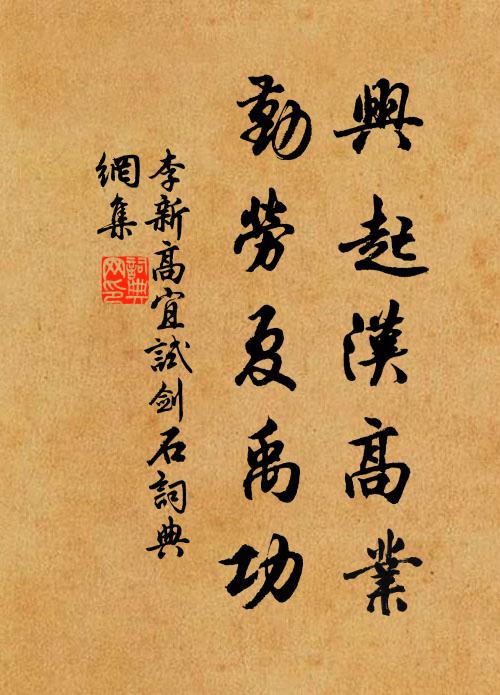 興起漢高業
勤勞夏禹功
李新高宜試劍石詞典
網集
詞典
网印